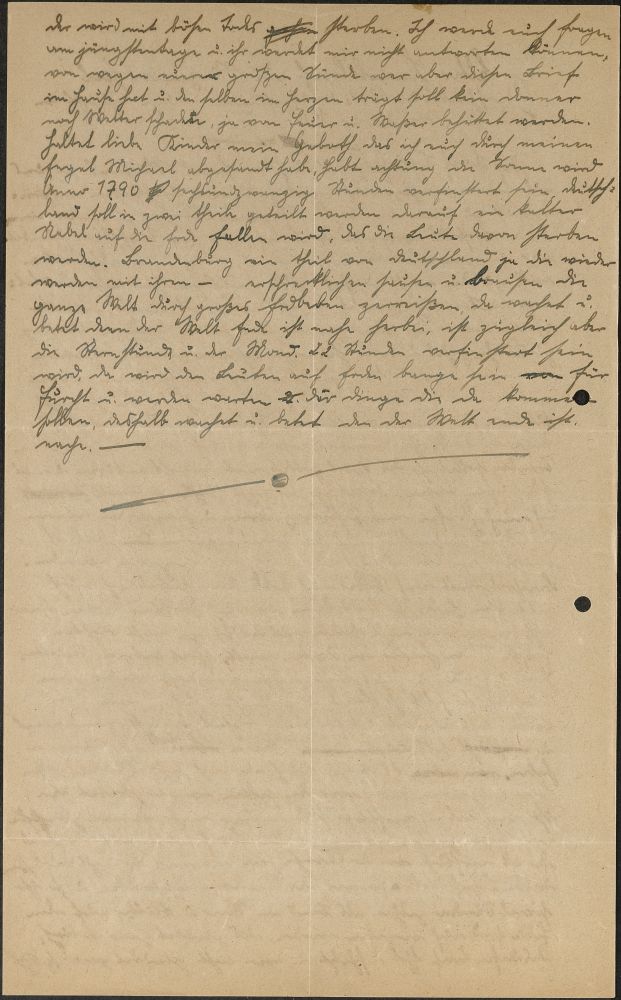 der wird mit bösen Todes sterben. Ich werde euch fragen
am jüngstentage u. ihr werdet mir nicht antworten können,
von wegen eurer großen Sünde wer aber diesen Brief
im Hause hat u. den selben im Herzen trägt soll kein donner
noch Wetter schaden, ja von Feuer u. Waßer behütet werden.
Haltet liebe Kinder mein Geboth das ich euch durch meinen
Engel Michael abgesandt habe habt achtung die Sonne wird
Anno 1790 sechsundzwanzig Stunden verfinstert sein, deutsch=
land soll in zwei theile geteilt werden darauf ein kalter
Nebel auf die Erde fallen wird, das die Leute davon sterben
werden. Brandenburg ein theil von deutschland ja die wieder
werden mit ihren – erschrecklichen sausen u. brausen die
ganze Welt durch großes Erdbeben zerreißen, da wachet u.
betet denn der Welt Ende ist nahe herbei, ist zigleich aber
die Sternstunde u. der Mond. 22 Stunden verfinstert sein
wird, da wird den Leuten auf Erden bange sein für
Furcht u. werden warten der dinge die da kommen
sollen, deshalb wachet u. betet den der Welt ende ist.
nache. —